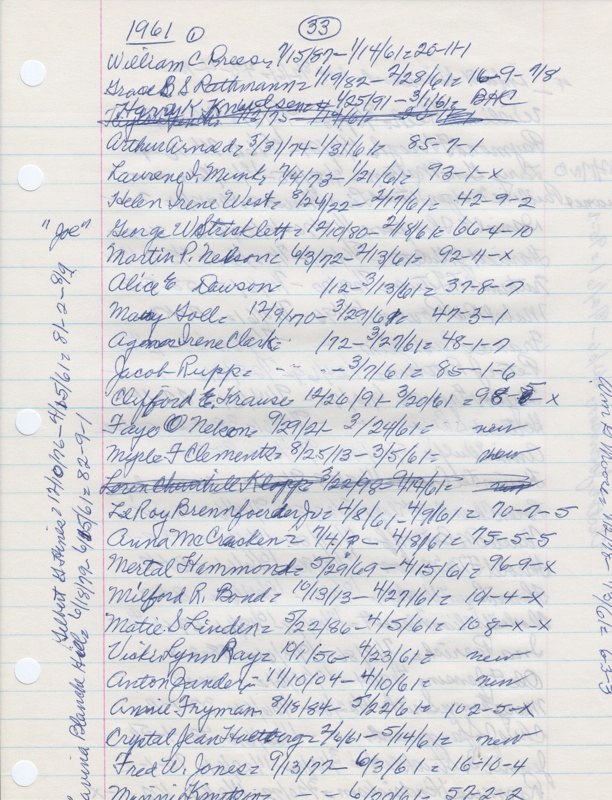 1961 1 33
William C. Breese 9/15/87-1/14/61= 20-11-1
Grace S Rathmann= 1/19/82-2/28/61= 16-9-7/8
Harry K. Knudsen 1/25/91-3/1/61= BHC
Arthur Arnold= 3/31/74-1/31/61= 85-7-1
Lawrence I. Munk= 7/4/73-1/21/61= 93-1-X
Helen Irene West= 8/24/22-2/17/61= 42-9-2
George W Stricklett= 12/10/80-2/18/61= 66-4-10
Martin P. Nelson= 6/3/72-2/13/61= 92-11-X
Alice E Dawson /12-3/13/61= 37-8-7
Mary Goll= 12/9/70-3/29/61= 47-3-1
Agnes Irene Clark= /72-3/27/61= 48-1-7
Jacob Rupp= - - - 3/7/61= 85-1-6
Clifford E. Krause= 12/26/91-3/20/61 = 98-5-X
Faye O Nelson= 9/27/21- 3/24/61= new
Myrle F Clements= 8/25/13-3/5/61= new
LeRoy Brennfoerder Jr= 4/8/61-4/9/61= 70-7-5
Anna McCracken= 7/4/ - 4/3/61= 75-5-5
Mertal Hammond= 5/29/69-4/15/61= 96-9-X
Milford R. Bond= 10/13/13-4/27/61= 101-4-X
Matie S Linden= 5/22/86-4/5/61= 108-X-X
Vicki Lynn Ray= 10/1/56-4/23/61= new
Anton Jander= 11/10/04-4/10/61= new
Annie Fryman- 8/18/84- 5/22/61= 102-5-X
Crystal Jean= 2/6/61-5/14/61= new
Fred W. Jones= 9/13/77- 6/3/61= 16-10-4
Minnie - - 6/20/61= 57-2-2
"Joe"
Gilbert G Hines= 12/10/76-4/65/61= 81-2-8/9
Lavina Blanche Hill= 6/18/72- 6/25/61= 82-9-1